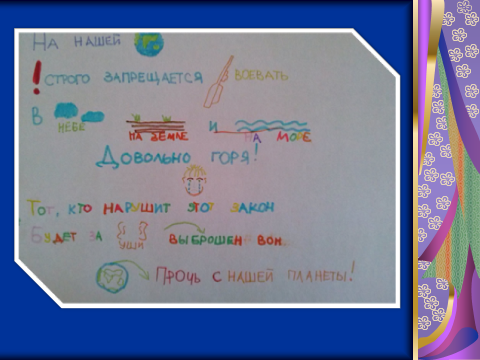 НА НАШЕЙ
! СТРОГО ЗАПРЕЩАЕТСЯ ВОЕВАТЬ
В НЕБЕ НА ЗЕМЛЕ И НА МОРЕ
ДОВОЛЬНО ГОРЯ!
ТОТ, КТО НАРУШИТ ЭТОТ ЗАКОН
БУДЕТ ЗА УШИ ВЫБРОШЕН ВОН.
ПРОЧЬ С НАШЕЙ ПЛАНЕТЫ!